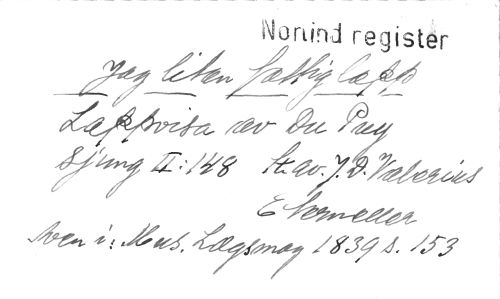 Nonind register
Jag liten fattig lapp
Lappvisa av Du Puy
Sjung II: 148 St. av. J. D. Valerius
även i: Mus. Lægsmag 1839 s. 153